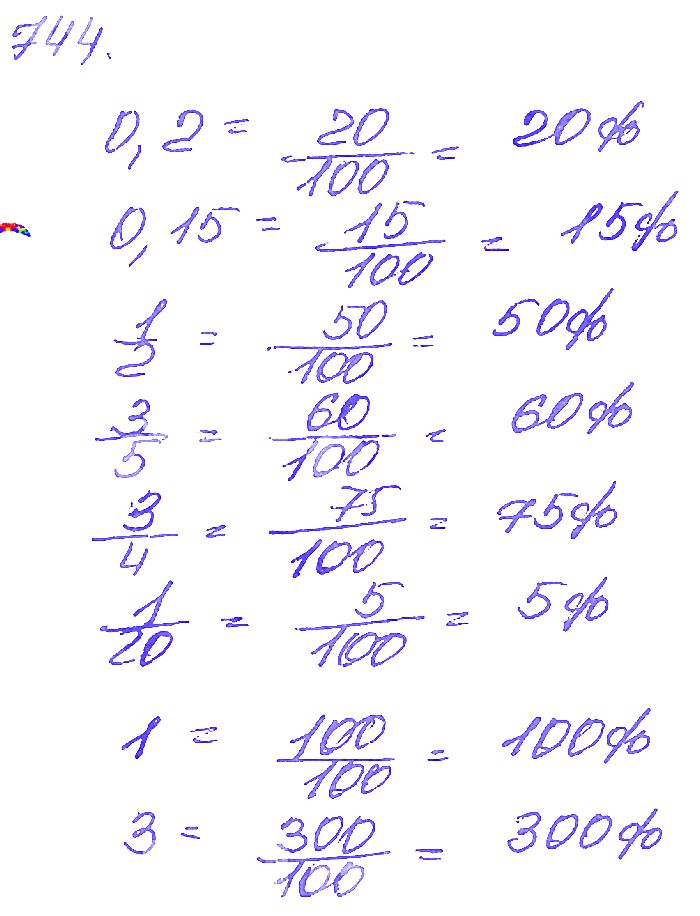 744.
0,2 = 20/100 = 20%
0,15 = 15/100 = 15%
1/2 = 50/100 = 50%
3/5 = 60/100 = 60%
3/4 = 75/100 = 75%
1/20 = 5/100 = 5%
1 = 100/100 = 100%
3 = 300/100 = 300%